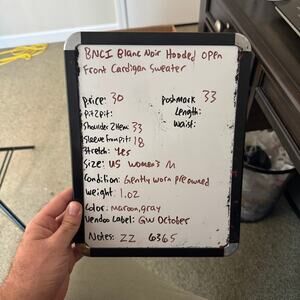 BNCI Blanc Noir Hooded Open
Front Cardigan Sweater
Price: 30
Poshmark 33
Pit2pit:
Length:
Shoulder2Hem: 33
Waist:
Sleeve from pit: 18
Stretch: yes
Size: US women's M
Condition: Gently worn preowned
Weight: 1.02
Color: maroon, gray
Vendoo Label: GW October
Notes: ZZ 6365